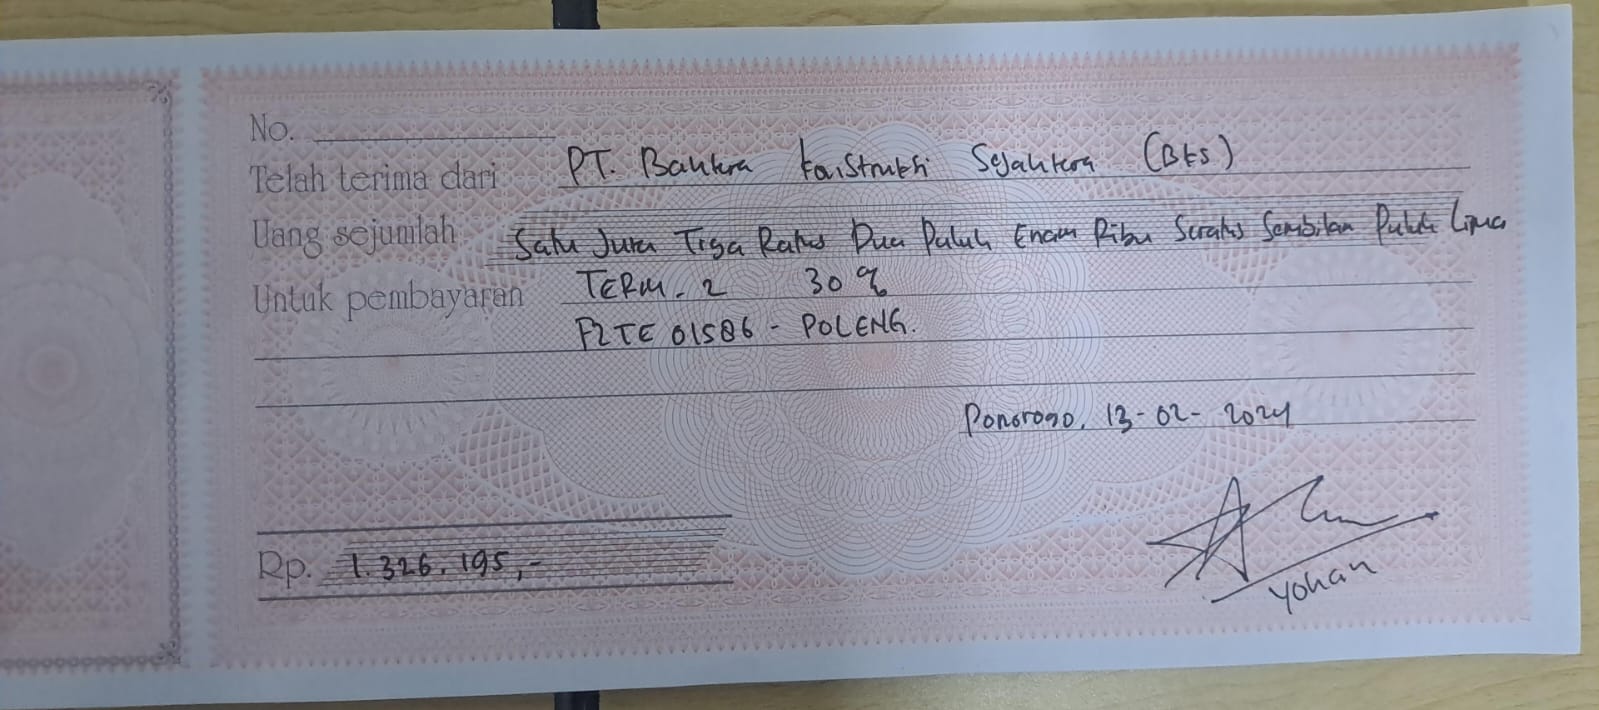 No.
Telah terima dari PT. Bahtera Konstruksi Sejahtera (BKS)
Uang sejumlah Satu Juta Tiga Ratus Dua Puluh Enam Ribu Seratus Sembilan Puluh Lima
Untuk pembayaran TERM. 2 30 %
F2TE 01586 - POLENG.
Ponorogo, 13-02-2024
Rp. 1.326.195,-
Yohan